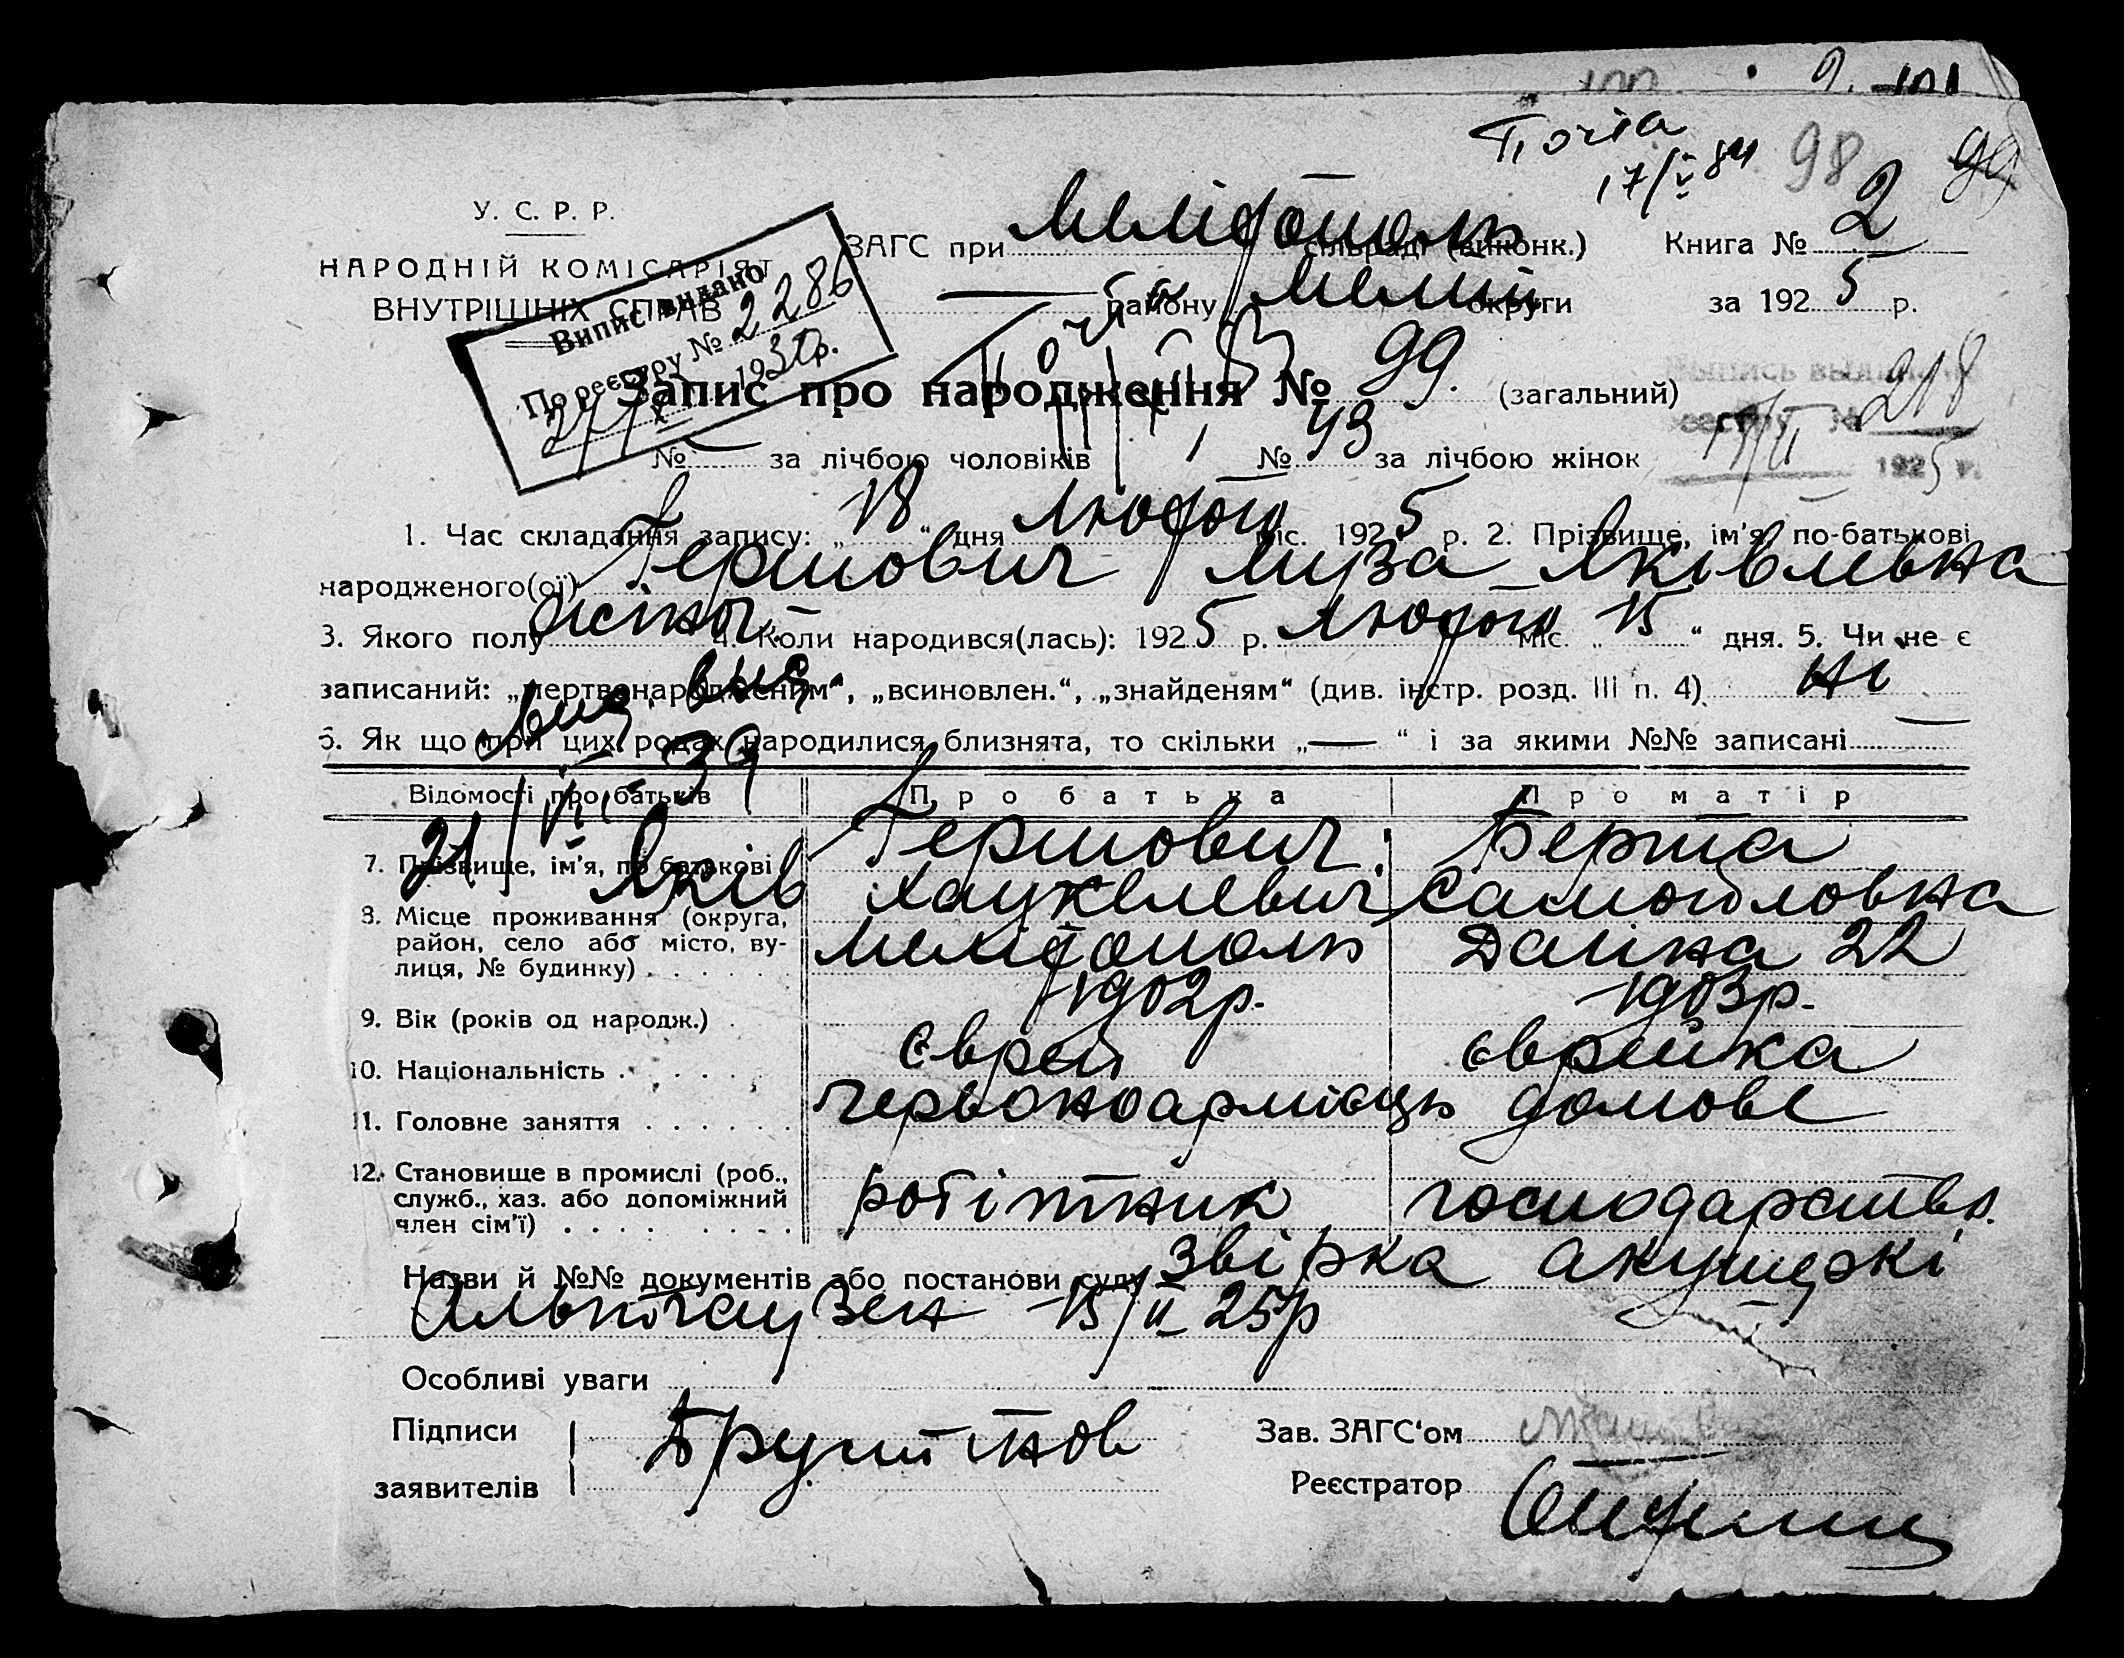 Почта
17/V 84 98 99
У. С. Р. Р.
НАРОДНІЙ КОМІСАРІЯТ
ВНУТРІШНІХ СПРАВ
Випис видано
По реєстру № 2286
27/X 1930р.
ЗАГС при Мелітополь сільраді (виконк.) Книга № 2
району Меліт округи за 1925 р.
Запис про народження № 99. (загальний)
218
1925 р.
№ — за лічбою чоловіків № 43 за лічбою жінок
1. Час складання запису: „18“ дня лютого міс. 1925 р. 2. Прізвище, ім'я, по-батькові
народженого(ої) Гершович Муза Яківлевна
3. Якого полу жіноч. 4. Коли народився(лась): 1925 р. лютого міс. „15“ дня. 5. Чи не є
записаний: „мертвонародженим“, „всиновлен.“, „знайденям“ (див. інстр. розд. III п. 4) ні
6. Як що при цих родах народилися близнята, то скільки „—“ і за якими №№ записані —
21/VII-39
Відомості про батьків Про батька Про матір
7. Прізвище, ім'я, по батькові Яків Гершович Берта
Хаукелевич Самойловна
8. Місце проживання (округа,
район, село або місто, ву-
лиця, № будинку) Мелітополь Даліна 22
9. Вік (років од народж.) 1902р. 1903р.
10. Національність єврей єврейка
11. Головне заняття червоноармієць домове
12. Становище в промислі (роб.,
служб., хаз. або допоміжний
член сім'ї) робітник господарств.
Назви й №№ документів або постанови суду Звірка акушеркі
Альтгаузен 15/II 25р
Особливі уваги
Підписи
заявителів
Зав. ЗАГС'ом
Реєстратор